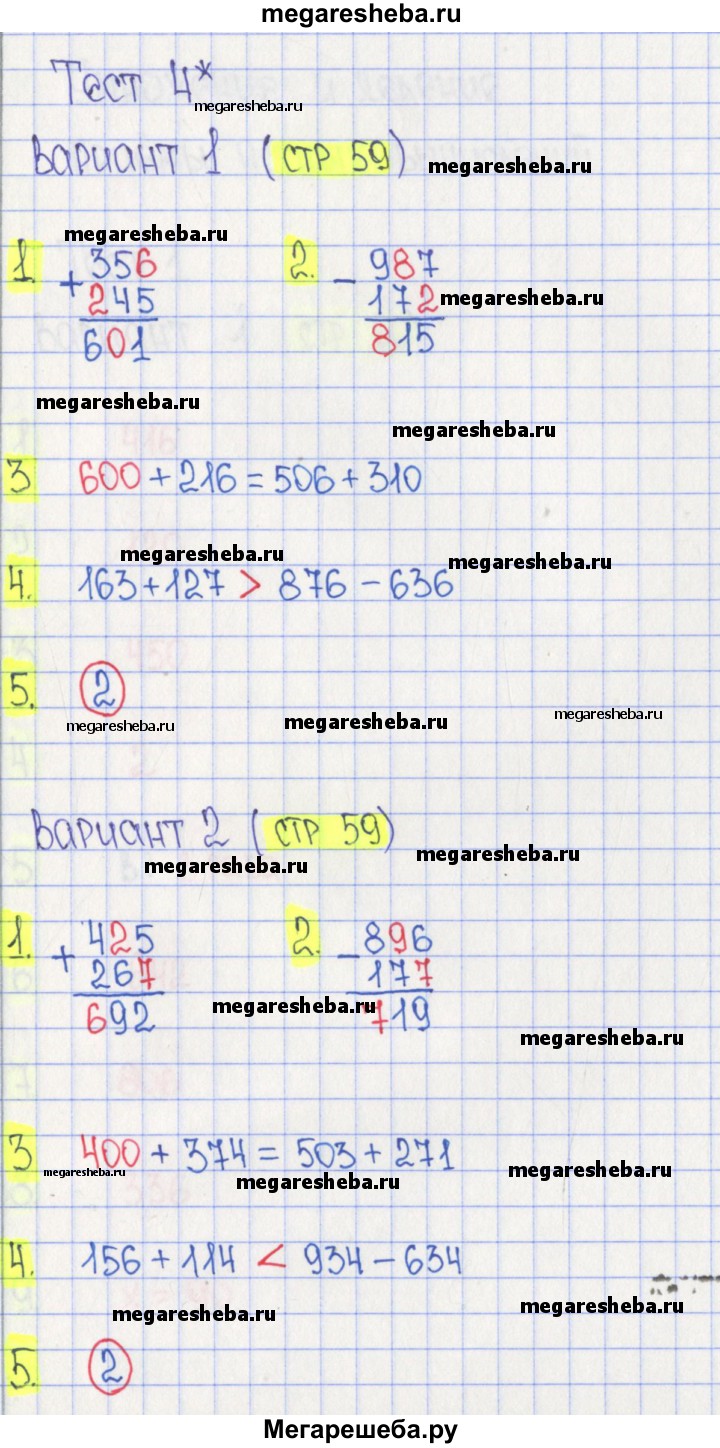 megaresheba.ru
Тест 4*
megaresheba.ru
Вариант 1 (стр 59)
megaresheba.ru
megaresheba.ru
1. + 356
245
601
2. - 987
172
815
megaresheba.ru
megaresheba.ru
megaresheba.ru
3 600 + 216 = 506 + 310
megaresheba.ru
megaresheba.ru
4. 163 + 127 > 876 - 636
5. 2
megaresheba.ru
megaresheba.ru
megaresheba.ru
Вариант 2 (стр 59)
megaresheba.ru
megaresheba.ru
1. + 425
267
692
2. - 896
177
719
megaresheba.ru
megaresheba.ru
3 400 + 374 = 503 + 271
megaresheba.ru
megaresheba.ru
megaresheba.ru
4. 156 + 114 < 934 - 634
megaresheba.ru
megaresheba.ru
5. 2
Мегарешеба.ру